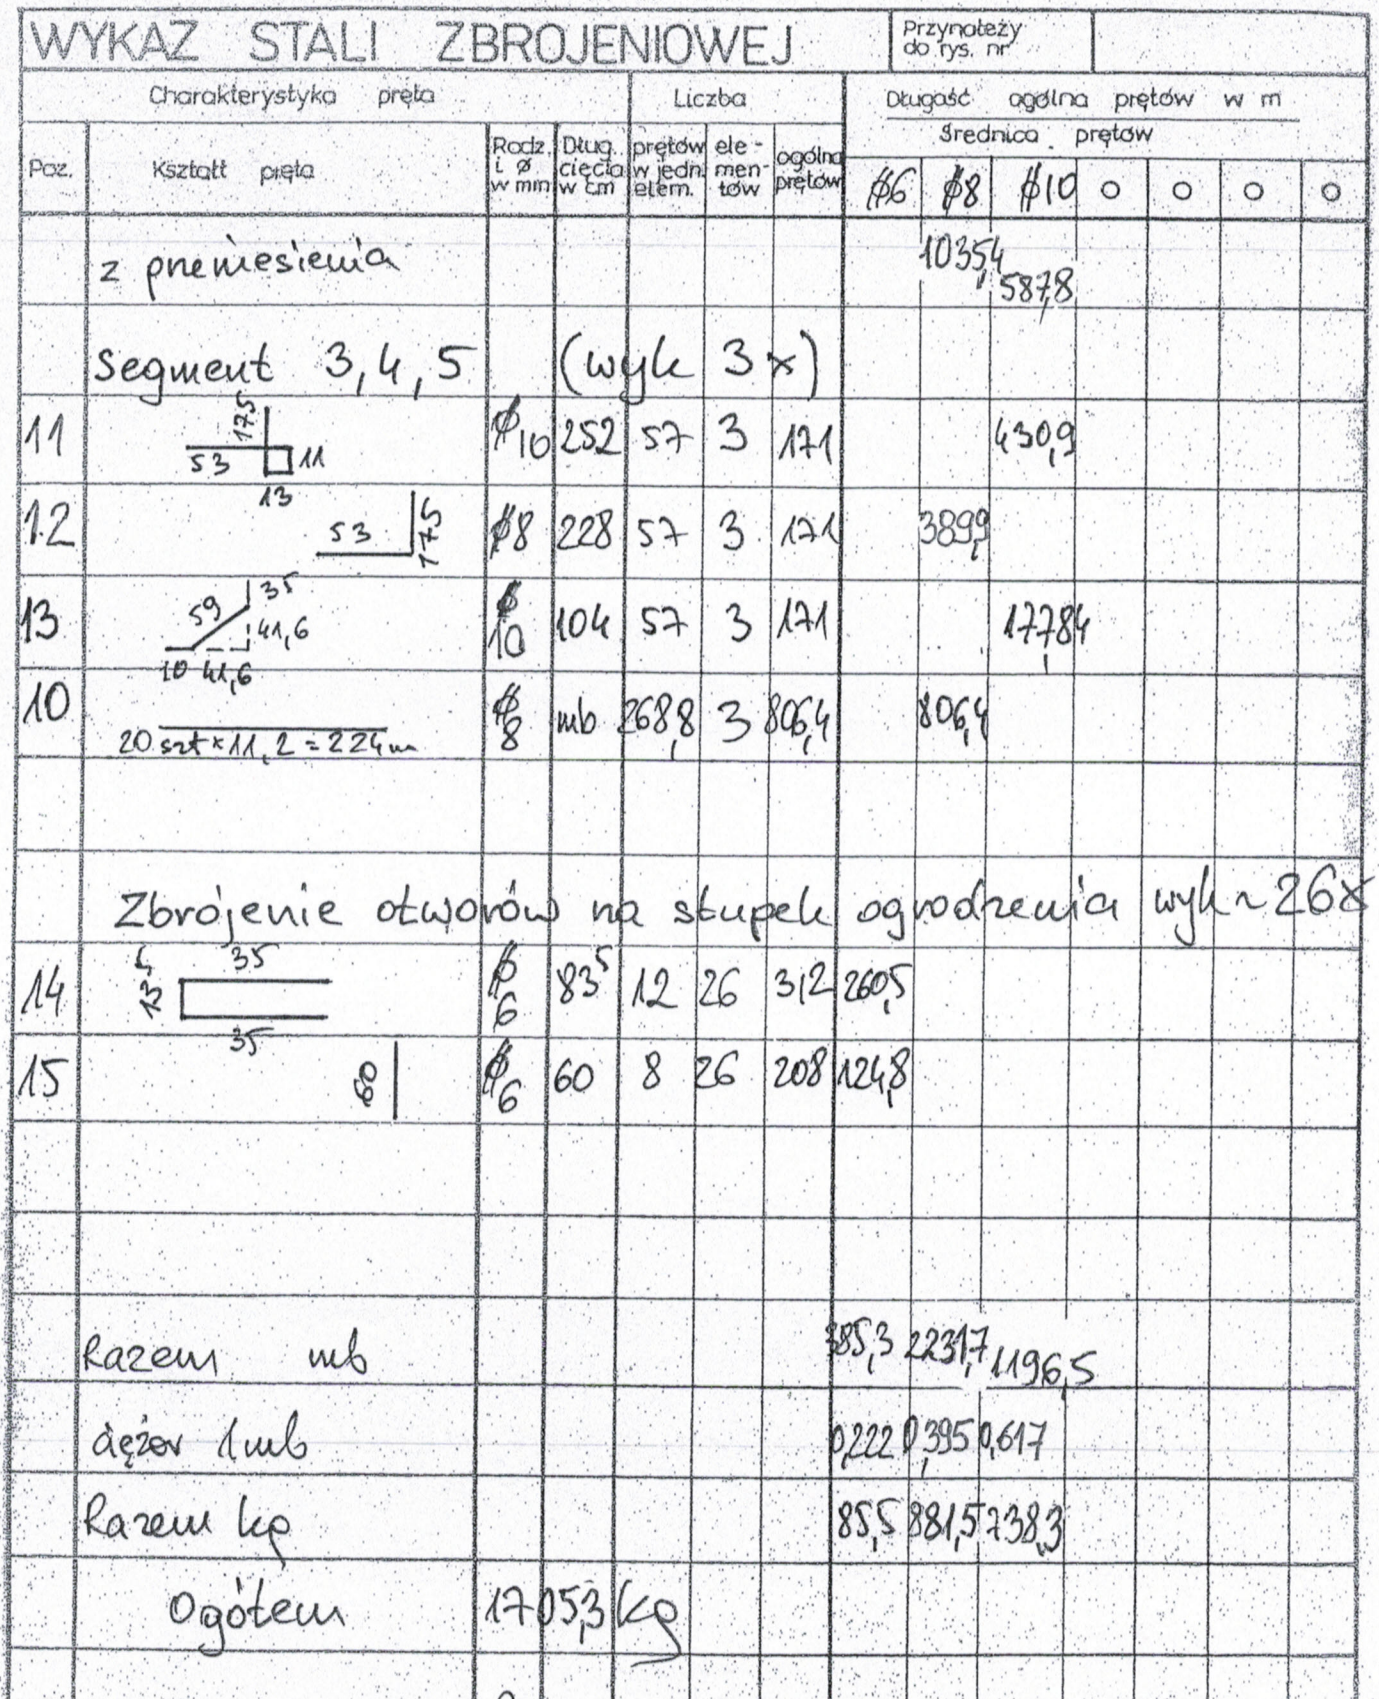 WYKAZ STALI ZBROJENIOWEJ Przynależy do rys. nr
Charakterystyka pręta Liczba Długość ogólna prętów w m
Średnica prętów
Poz. Kształt pręta Rodz. i ø w mm Dług. cięcia w cm prętów w jedn. elem. elementów ogólna prętów ø6 ø8 ø10
z przeniesienia 1035,4 587,8
Segment 3,4,5 (wyk 3x)
11 175 53 11 13 ø10 252 57 3 171 430,9
12 53 175 ø8 228 57 3 171 389,9
13 59 35 41,6 10 41,6 ø10 104 57 3 171 177,84
10 20 szt x 11,2 = 224m ø8 mb 268,8 3 806,4 806,4
Zbrojenie otworów na słupek ogrodzenia wyk ~ 26x
14 35 13,5 35 ø6 83,5 12 26 312 260,5
15 60 ø6 60 8 26 208 124,8
Razem mb 385,3 2231,7 1196,5
ciężar 1mb 0,222 0,395 0,617
Razem kg 85,5 881,5 738,3
Ogółem 1705,3 kg